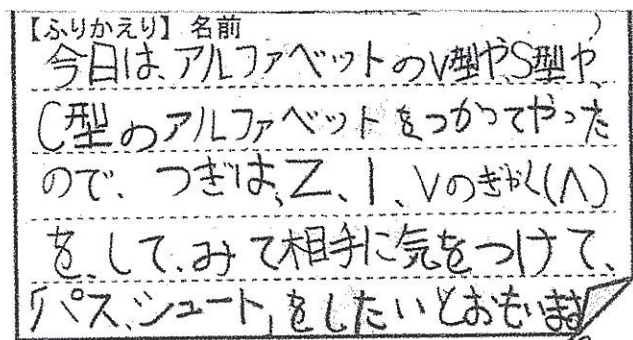 【ふりかえり】名前
今日は、アルファベットのV型や、S型や、
C型のアルファベットをつかってやった
ので、つぎは、Z、I、Vのぎゃく(Λ)
を、して、みて相手に気をつけて、
「パス、シュート」をしたいとおもいます